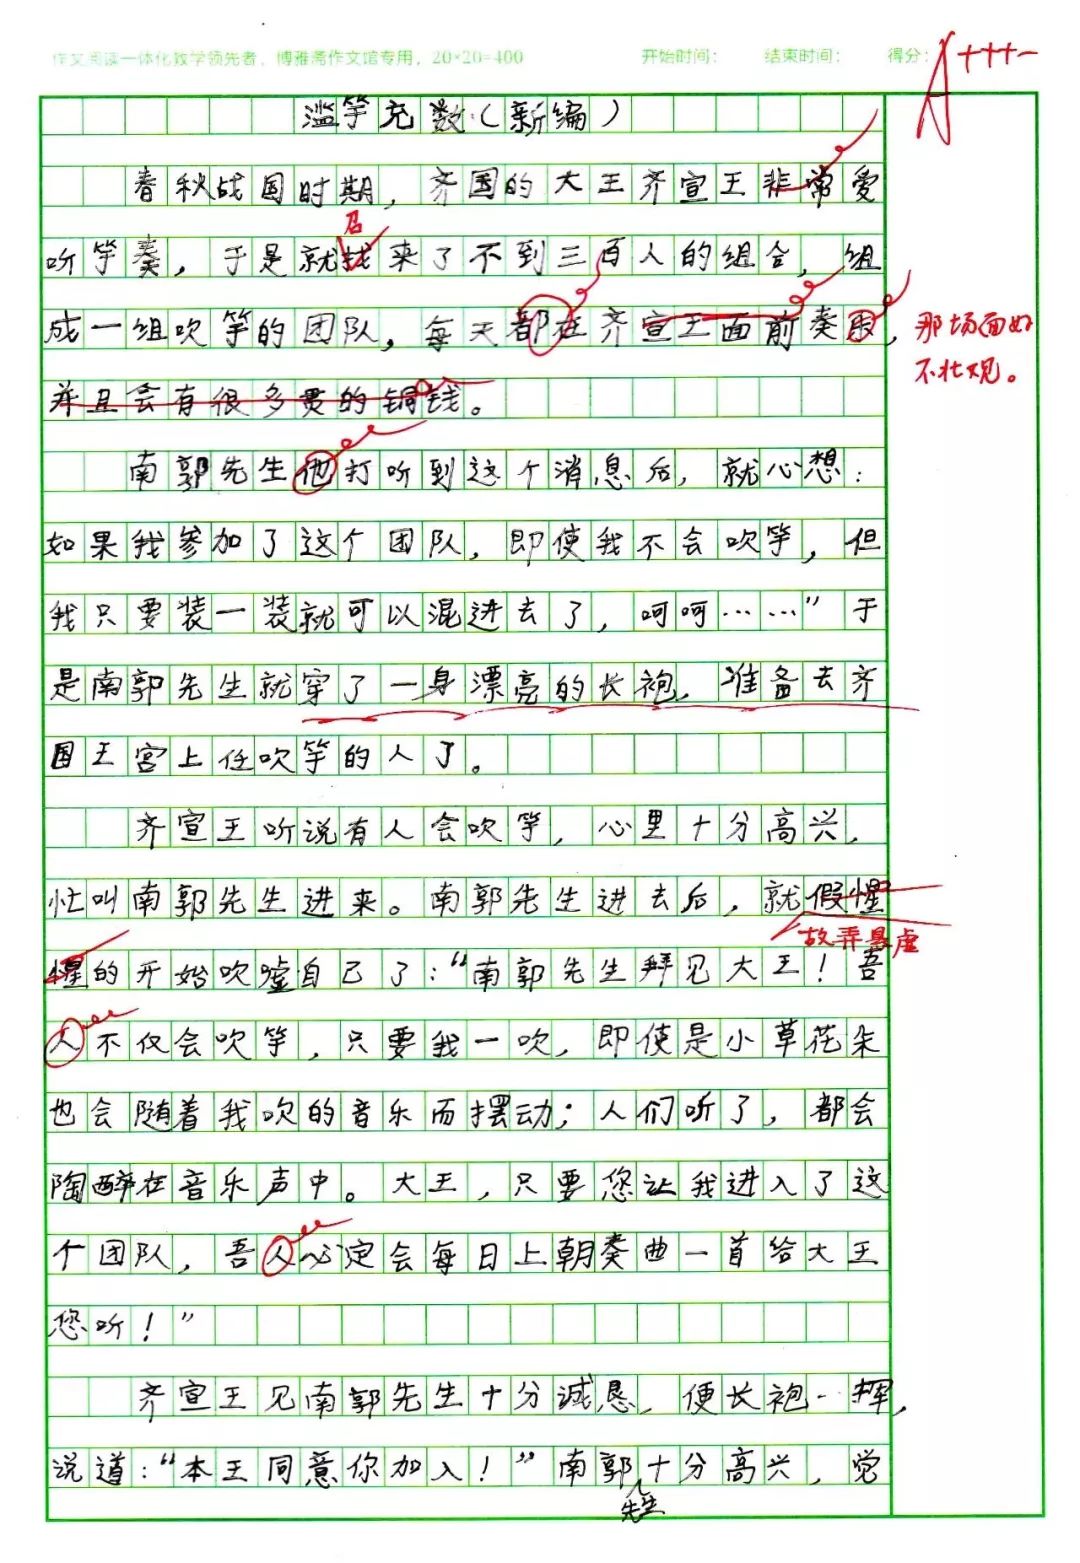 作文阅读一体化教学领先者，博雅斋作文馆专用，20*20=400 开始时间： 结束时间： 得分： A+++-
滥竽充数（新编）
春秋战国时期，齐国的大王齐宣王非常爱
召
听竽奏，于是就找来了不到三百人的组合，组
成一组吹竽的团队，每天都在齐宣王面前奏
那场面好
不壮观。
并且会有很多贯的铜钱。
南郭先生他打听到这个消息后，就心想：
如果我参加了这个团队，即使我不会吹竽，但
我只要装一装就可以混进去了，呵呵……”于
是南郭先生就穿了一身漂亮的长袍，准备去齐
国王宫上任吹竽的人了。
齐宣王听说有人会吹竽，心里十分高兴，
忙叫南郭先生进来。南郭先生进去后，就假惺
故弄悬虚
惺的开始吹嘘自己了：“南郭先生拜见大王！吾
人不仅会吹竽，只要我一吹，即使是小草花朵
也会随着我吹的音乐而摆动；人们听了，都会
陶醉在音乐声中。大王，只要您让我进入了这
个团队，吾人必定会每日上朝奏曲一首给大王
您听！”
齐宣王见南郭先生十分诚恳，便长袍一挥，
说道：“本王同意你加入！”南郭十分高兴，觉
先生